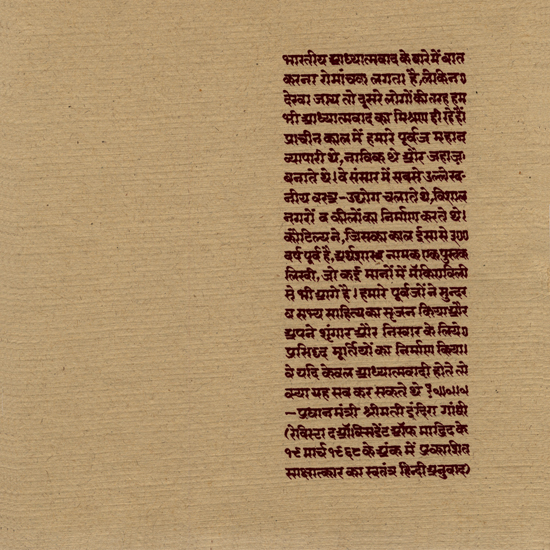 भारतीय आध्यात्मवाद के बारे में बात
करना रोमांचक लगता है, लेकिन
देखा जाय तो दूसरे लोगों की तरह हम
भी आध्यात्मवाद का मिश्रण ही रहे हैं।
प्राचीन काल में हमारे पूर्वज महान
व्यापारी थे, नाविक थे और जहाज़
बनाते थे। वे संसार में सबसे उल्लेख-
नीय वस्त्र-उद्योग चलाते थे, विशाल
नगरों व कीलों का निर्माण करते थे।
कौटिल्य ने, जिसका काल ईसा से ३००
वर्ष पूर्व है, अर्थशास्त्र नामक एक पुस्तक
लिखी, जो कई मानों में मॅकियाविली
से भी आगे है। हमारे पूर्वजों ने सुन्दर
व सभ्य साहित्य का सृजन किया और
अपने शृंगार और निखार के लिये
प्रसिध्द मूर्तियों का निर्माण किया।
वे यदि केवल आध्यात्मवादी होते तो
क्या यह सब कर सकते थे ?
—प्रधान मंत्री श्रीमती इंदिरा गांधी
(रेविस्टा द ऑक्सिडेंट ऑफ माद्रिद के
१९ मार्च १९६८ के अंक में प्रकाशित
साक्षात्कार का स्वतंत्र हिन्दी अनुवाद)